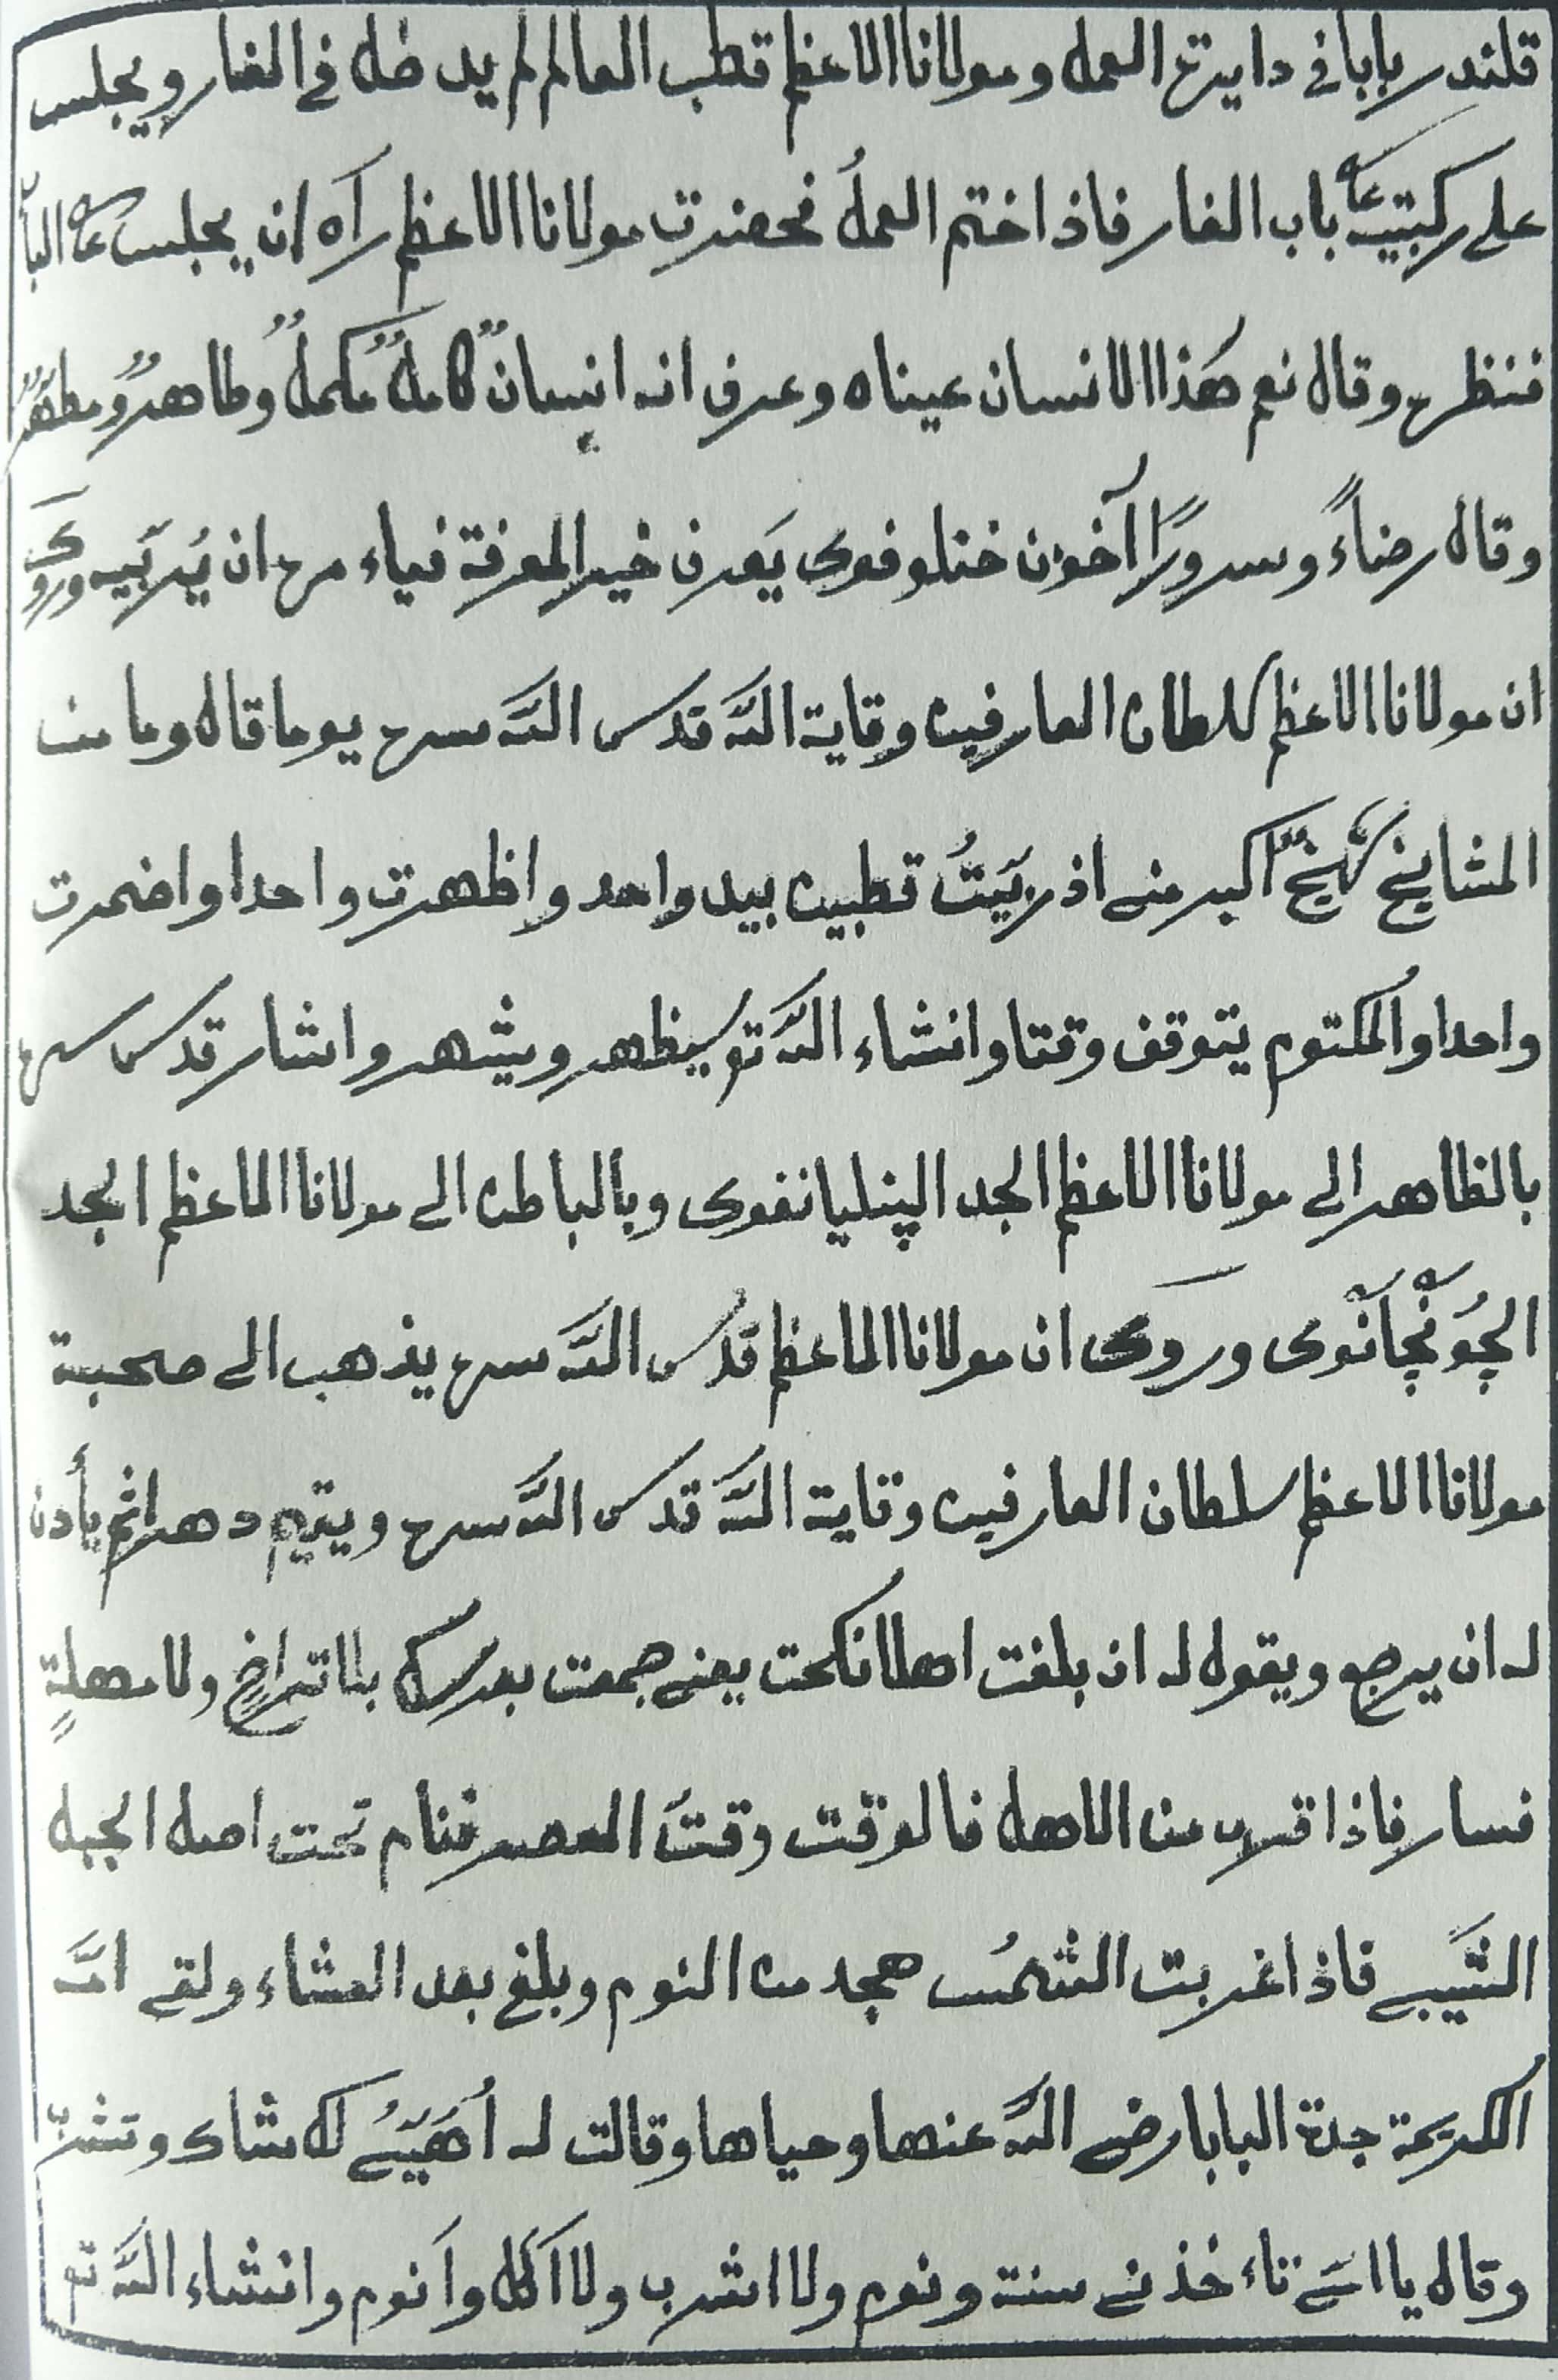 قلندر بابا فى دايرة العمل و مولانا الاعظم قطب العالم لم يدخل فى الغار و يجلس
على ركبتيه على باب الغار فاذا ختم العملُ فحضرت مولانا الاعظم رآه ان يجلس على البأ
فنظره وقال نعم هَذا الانسان عيناه وعرف انه انسانٌ كاملٌ مكملٌ وطاهرٌ ومطهَّرٌ
وقال رضاءً وسرورًا آخون ختلوفوى يَعرف خير المعرفة فياء مره ان يُربّيه وروىَ
ان مولانا الاعظم سلطان العارفين وقاية اللّٰه قدس اللّٰه سره يوما قال وما من
المشايخ شيخٌ اكبر منى اذ ربّيتُ قطبين بيد واحد واظهرت واحدا واضمرت
واحدا والمُكتوم يتوقف وقتا وانشاء اللّٰه تع سيظهر ويشهر واشار قدس سره
بالظاهر الى مولانا الاعظم الجد الپنليانفوى وبالباطن الى مولانا الاعظم الجد
الچُونْچانْوى وروىَ ان مولانا الاعظم قدس اللّٰه سره يذهب الى صحبة
مولانا الاعظم سلطان العارفين وقاية اللّٰه قدس اللّٰه سره ويقيم دهرا ثم يأذن
له ان يرجع ويقول له ان بلغت اهلا نكحت يعنى جمعت بعرسك بلا تراخٍ ولا مهلةٍ
فسار فاذا قرب من الاهل فالوقت وقتَ العصر فنام تحت اصل الجبل
الشَّيبى فاذا غربت الشمسُ هجد من النوم وبلغ بعد العشاء ولقى امّه
الكريمة جدة البابا رضى اللّٰه عنها وحياها وقالت له اُهَيّئُ لك شاك وتشربّ
وقال يا امّى تاءخذنى سنة ونوم ولا اشرب ولا اَكل واَنوم وانشاء اللّٰه تع